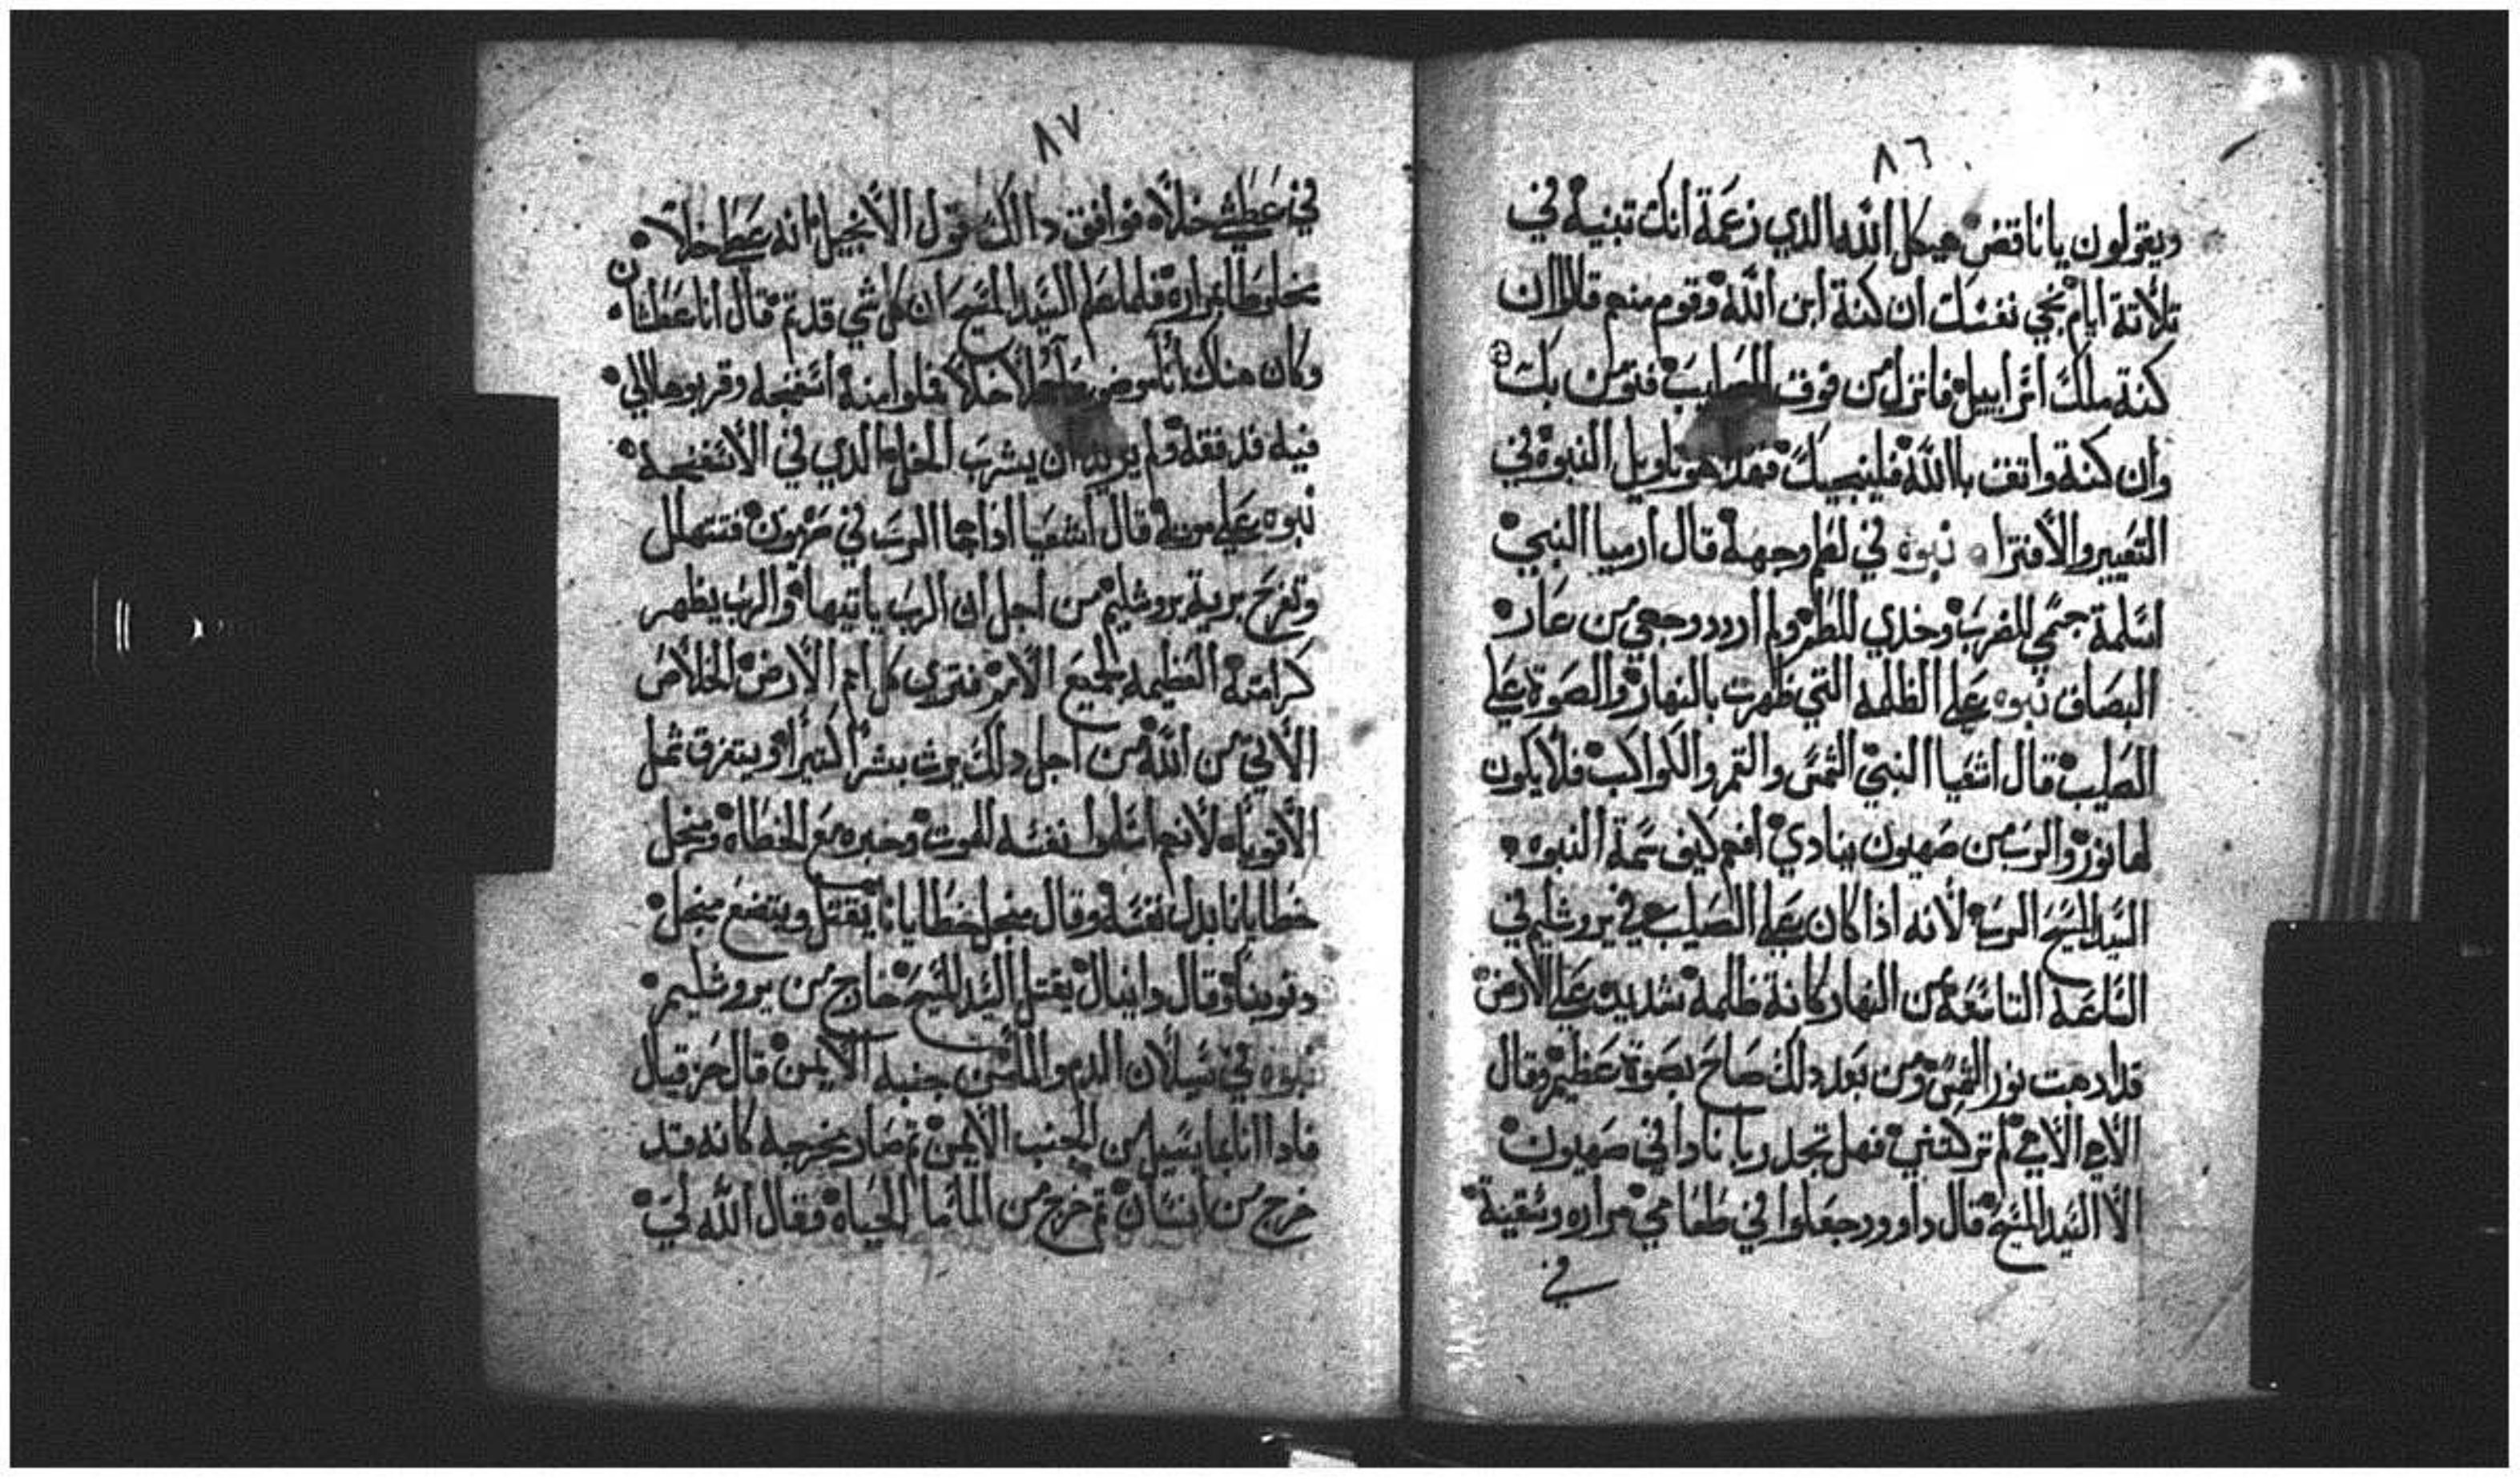 ٨٦
ويقولون يا ناقض هيكل الله الدي زعمة انك تبنية في
تلاتة ايام نجي نفسك ان كنة ابن الله وقوم منهم قالوا ان
كنة ملك اسراييل فانزل من فوق الصليب فنومن بك
وان كنة واتق بالله فلينجيك فهدا هو تاويل النبوة في
التعيير والأفترا نبوه في لطم وجهة قال ارميا النبي
اسلمة جسمي للضرب وخدي للطم ولم اردد وجهي من عار
البصاق نبوه علي الظلمه التي ظهرت بالنهار والصوة علي
الصليب قال اشعيا النبي الشمس والقمر والكواكب فلا يكون
لها نور والرب من صهيون ينادي افهم كيف تمة النبوه
السيد المسيح الرب لأنه اذا كان علي الصليب في يروشليم في
الساعة التاسعة من النهار كانة ظلمة شديده علي الأرض
قد ادهبت نور الشمس ومن بعد دلك صاح بصوة عظيم وقال
الأهي الأهي لم تركتني فهل تجد ربا نادا في صهيون
الا السيد المسيح قال داوود جعلوا في طعامي مراره وسقينة
في
٨٧
في عطشي خلاً فوافق دالك قول الأنجيل انه عطي خلاً
مخلوطا بمراره فلما علم السيد المسيح ان كل شي قد تم قال انا عطشان
وكان هناك اناً موضوعاً مملاً خلاً فملوا منة اسفنجه وقربوها الي
فيه فدفقه ولم يريد ان يشرب الخل الدي في الأسفنجة
نبوه علي موته قال اشعيا اذا جا الرب في صهيون فتتهلل
وتفرح برية يروشليم من اجل ان الرب ياتيها والرب يظهر
كرامتة العظيمة لجميع الأمم فتري كل امم الأرض الخلاص
الأتي من الله من اجل دلك يرث بشراً كتيراً ويتمزق شمل
الأقوياه لأنهم اسلموا نفسه للموت وحبره مع الخطاه ومنجل
خطايانا بدل نفسة وقال منجل خطايانا يقتل ويتضع منجل
دنوبنا وقال دانيال يقتل السيد المسيح خارج من يروشليم
نبوه في سيلان الدم والما من جنبه الأيمن قال حزقيال
فادا انا بما يسيل من الجنب الأيمن تم صار يخرجه كانه قد
خرج من انسان تم خرج من الما ما الحياه فقال الله لي